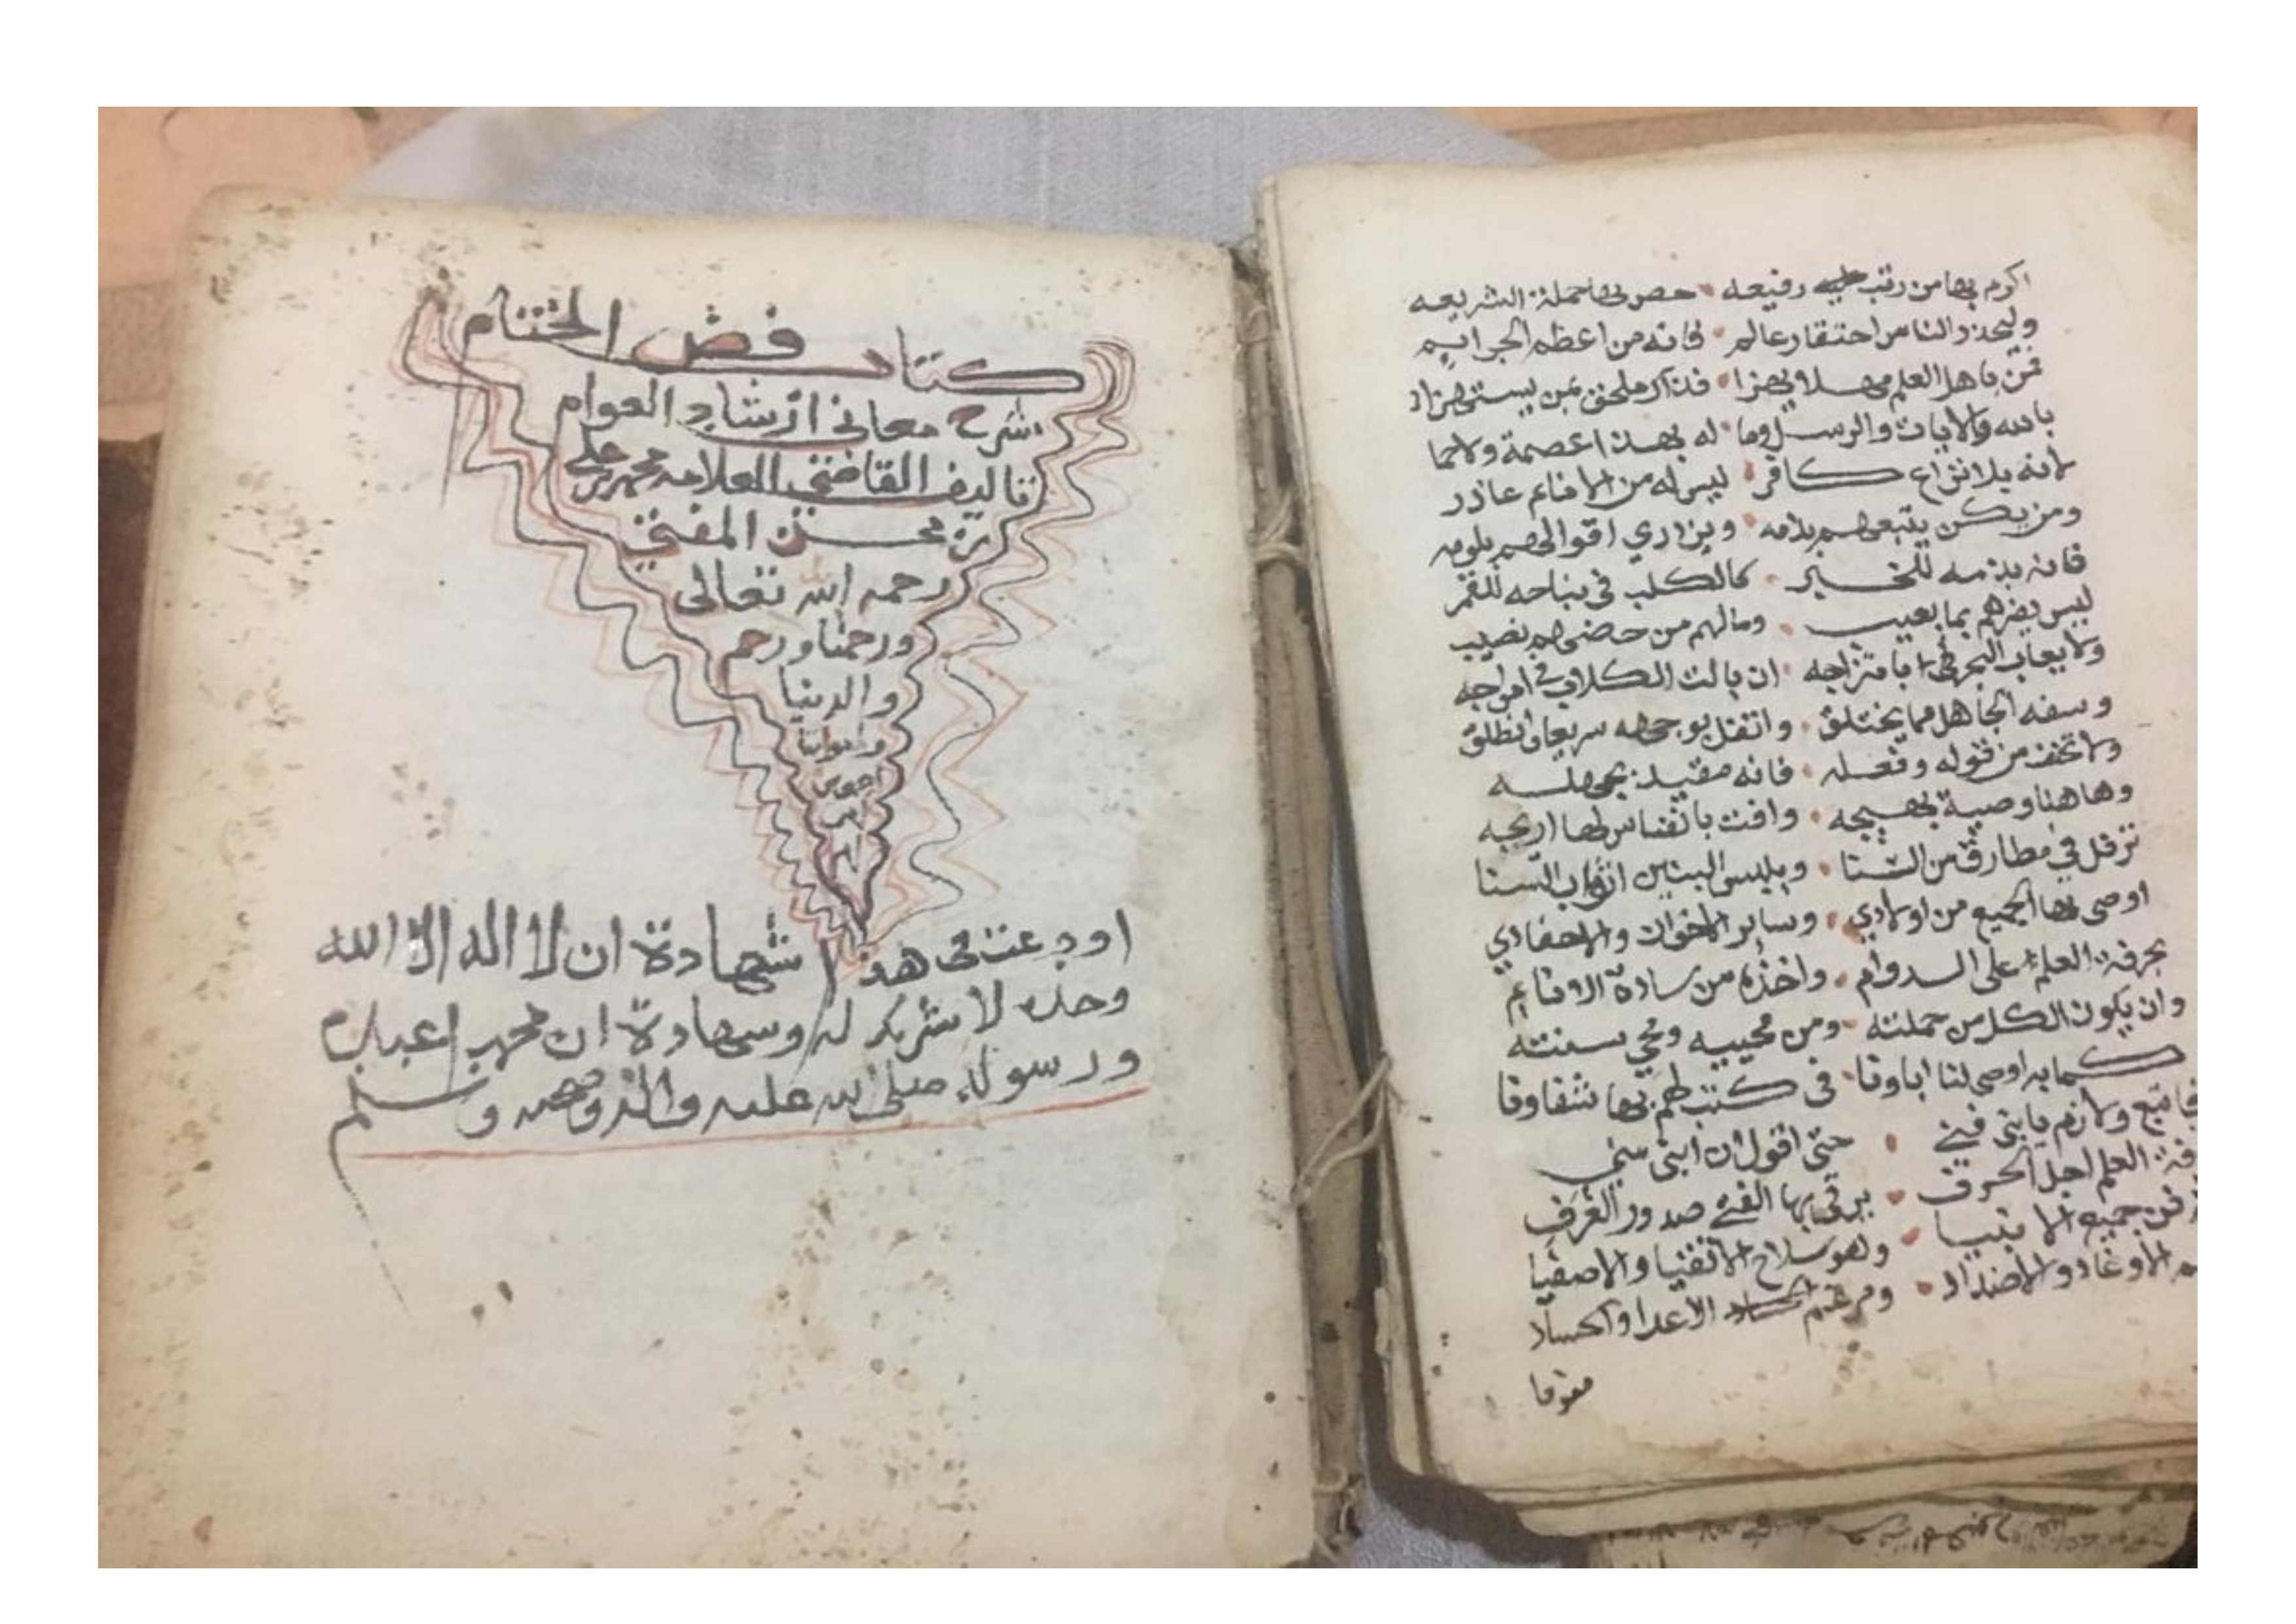 اكرم بها من رتب رفيعه حص بها حملة الشريعه
وليحذر الناس احتقار عالم فانه من اعظم الجرايم
فمن باهل العلم جهلا يهزا فذاك ملحق بمن يستهزا
بالله والايات والرسل وما له بهذا عصمة ولا حما
لانه بلا نزاع كافر ليس له من الانام عاذر
ومن يكن يتبعهم بذمه ويزدري اقوالهم بلومه
فانه بذمه للخير كالكلب في نباحه للقمر
ليس يضرهم بما يعيب وما لهم من حضهم نصيب
ولا يعاب البحر في امتزاجه ان بالت الكلاب في امواجه
وسفه الجاهل مما يختلق واتفل بوجهه سريعا وانطلق
ولا تخف من قوله وفعله فانه مقيد بجهله
وهاهنا وصية بهيجه وافت بانفاس لها اريجه
ترفل في مطارف من السنا ويلبس البيتين اثواب السنا
اوصي بها الجميع من اولادي وساير الاخوان والاحفادي
بحرفة العلم على الدوام واخذه من سادة الانام
وان يكون الكل من حملته ومن محبيه ومحي سنته
كما به اوصى لنا اباونا في كتب لهم بها شفاونا
فاتبع ولازم يابني فني حتى اقول ان ابني سني
العلم اجل الحرف يرقى بها الفتى صدور الغرف
من جميع الانبيا وهو سلاح الاتقيا والاصفيا
الاوغاد والاضداد ومرغم الاعدا والحساد
كتاب فض الختام
شرح معاني ارشاد العوام
تاليف القاضي العلامه محمد بن علي
بن محسن المفتي
رحمه الله تعالى
ورحمنا ورحم
والدينا
اودعت في هذا شهادة ان لا اله الا الله
وحده لا شريك له وشهادة ان محمدا عبده
ورسوله صلى الله عليه واله وصحبه وسلم